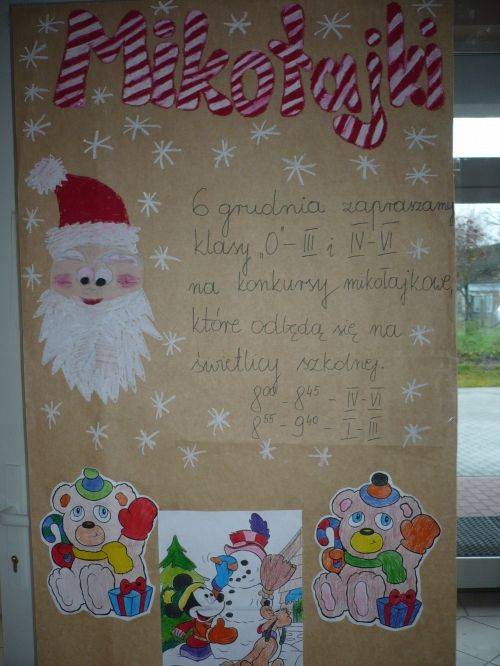 Mikołajki
6 grudnia zapraszamy
klasy „0"-III i IV-VI
na konkursy mikołajkowe,
które odbędą się na
świetlicy szkolnej.
8⁰⁰ - 8⁴⁵ - IV-VI
8⁵⁵ - 9⁴⁰ - I-III